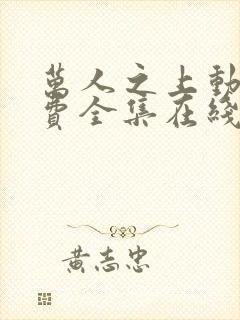 萬人之上動
費全集在綫
黃志忠